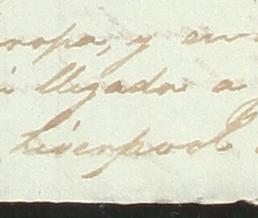 ropa, y en
llegada a
Liverpool